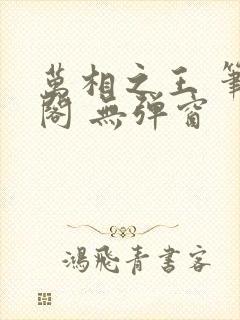 萬相之王 筆
閣 無彈窗
鴻飛青書客